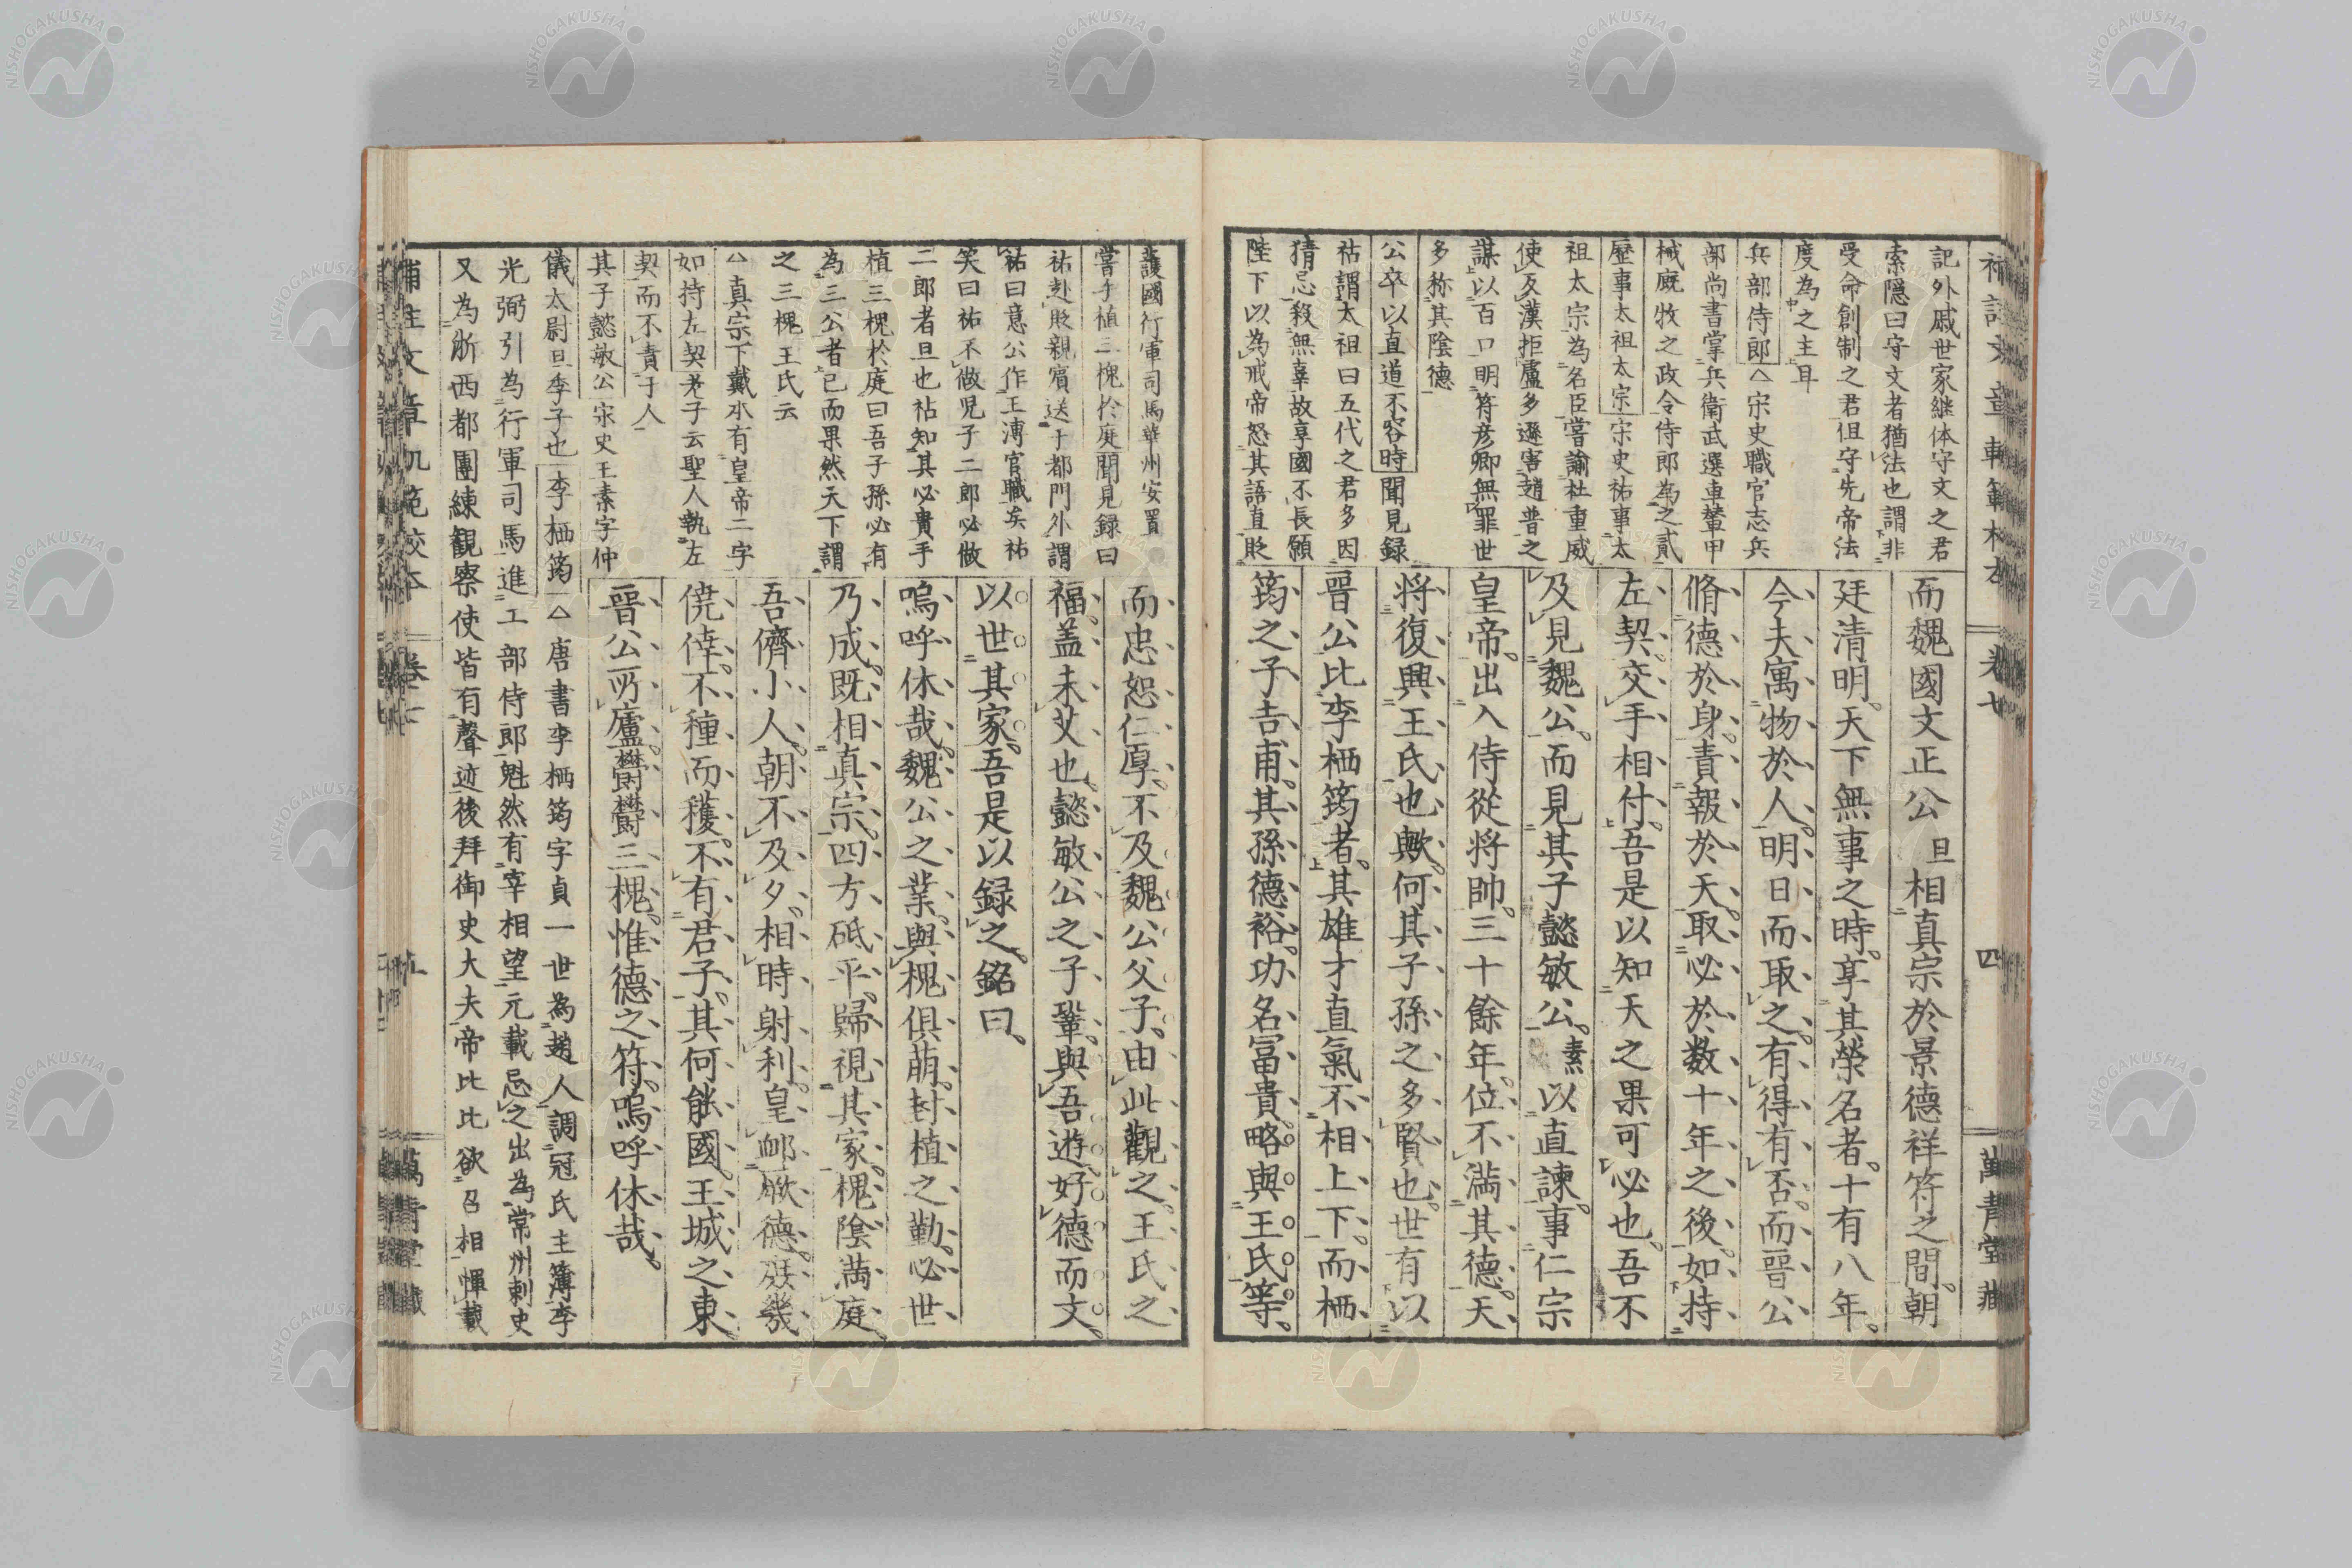 記外戚世家継体守文之君
索隠曰守文者猶法也謂非
受命創制之君但守先帝法
度為之主耳
兵部侍郎△宋史職官志兵
部尚書掌兵衛武選車輦甲
械厩牧之政令侍郎為之貳
歴事太祖太宗宋史祐事太
祖太宗為名臣嘗諭杜重威
使反漢拒盧多遜害趙普之
謀以百口明符彦卿無罪世
多称其陰德
公卒以直道不容時聞見録
祐謂太祖曰五代之君多因
猜忌殺無辜故享國不長願
陛下以為戒帝怒其語直貶
而魏國文正公旦相真宗於景德祥符之間朝
廷清明天下無事之時享其榮名者十有八年
今夫寓物於人明日而取之有得有否而晉公
脩德於身責報於天取必於数十年之後如持
左契交手相付吾是以知天之果可必也吾不
及見魏公而見其子懿敏公素以直諌事仁宗
皇帝出入侍從将帥三十餘年位不満其德天
将復興王氏也歟何其子孫之多賢也世有以
晉公比李栖筠者其雄才直氣不相上下而栖
筠之子吉甫其孫德裕功名富貴略與王氏等
護國行軍司馬華州安置
嘗手植三槐於庭聞見録曰
祐赴貶親賓送于都門外謂
祐曰意公作王溥官職矣祐
笑曰祐不做児子二郎必做
二郎者旦也祐知其必貴手
植三槐於庭曰吾子孫必有
為三公者已而果然天下謂
之三槐王氏云
△真宗下戴本有皇帝二字
如持左契老子云聖人執左
契而不責于人
其子懿敏公宋史王素字仲
儀太尉旦季子也李栖筠△唐書李栖筠字貞一世為趙人調冠氏主簿李
光弼引為行軍司馬進工部侍郎魁然有宰相望元載忌之出為常州刺史
又為浙西都團練観察使皆有聲迹後拜御史大夫帝比比欲召相憚載
而忠恕仁厚不及魏公父子由此觀之王氏之
福盖未艾也懿敏公之子鞏與吾遊好德而文
以世其家吾是以録之銘曰
嗚呼休哉魏公之業與槐倶萌封植之勤必世
乃成既相真宗四方砥平歸視其家槐陰満庭
吾儕小人朝不及夕相時射利皇䘏厥德庶幾
僥倖不種而穫不有君子其何能國王城之東
晉公所廬鬱鬱三槐惟德之符嗚呼休哉